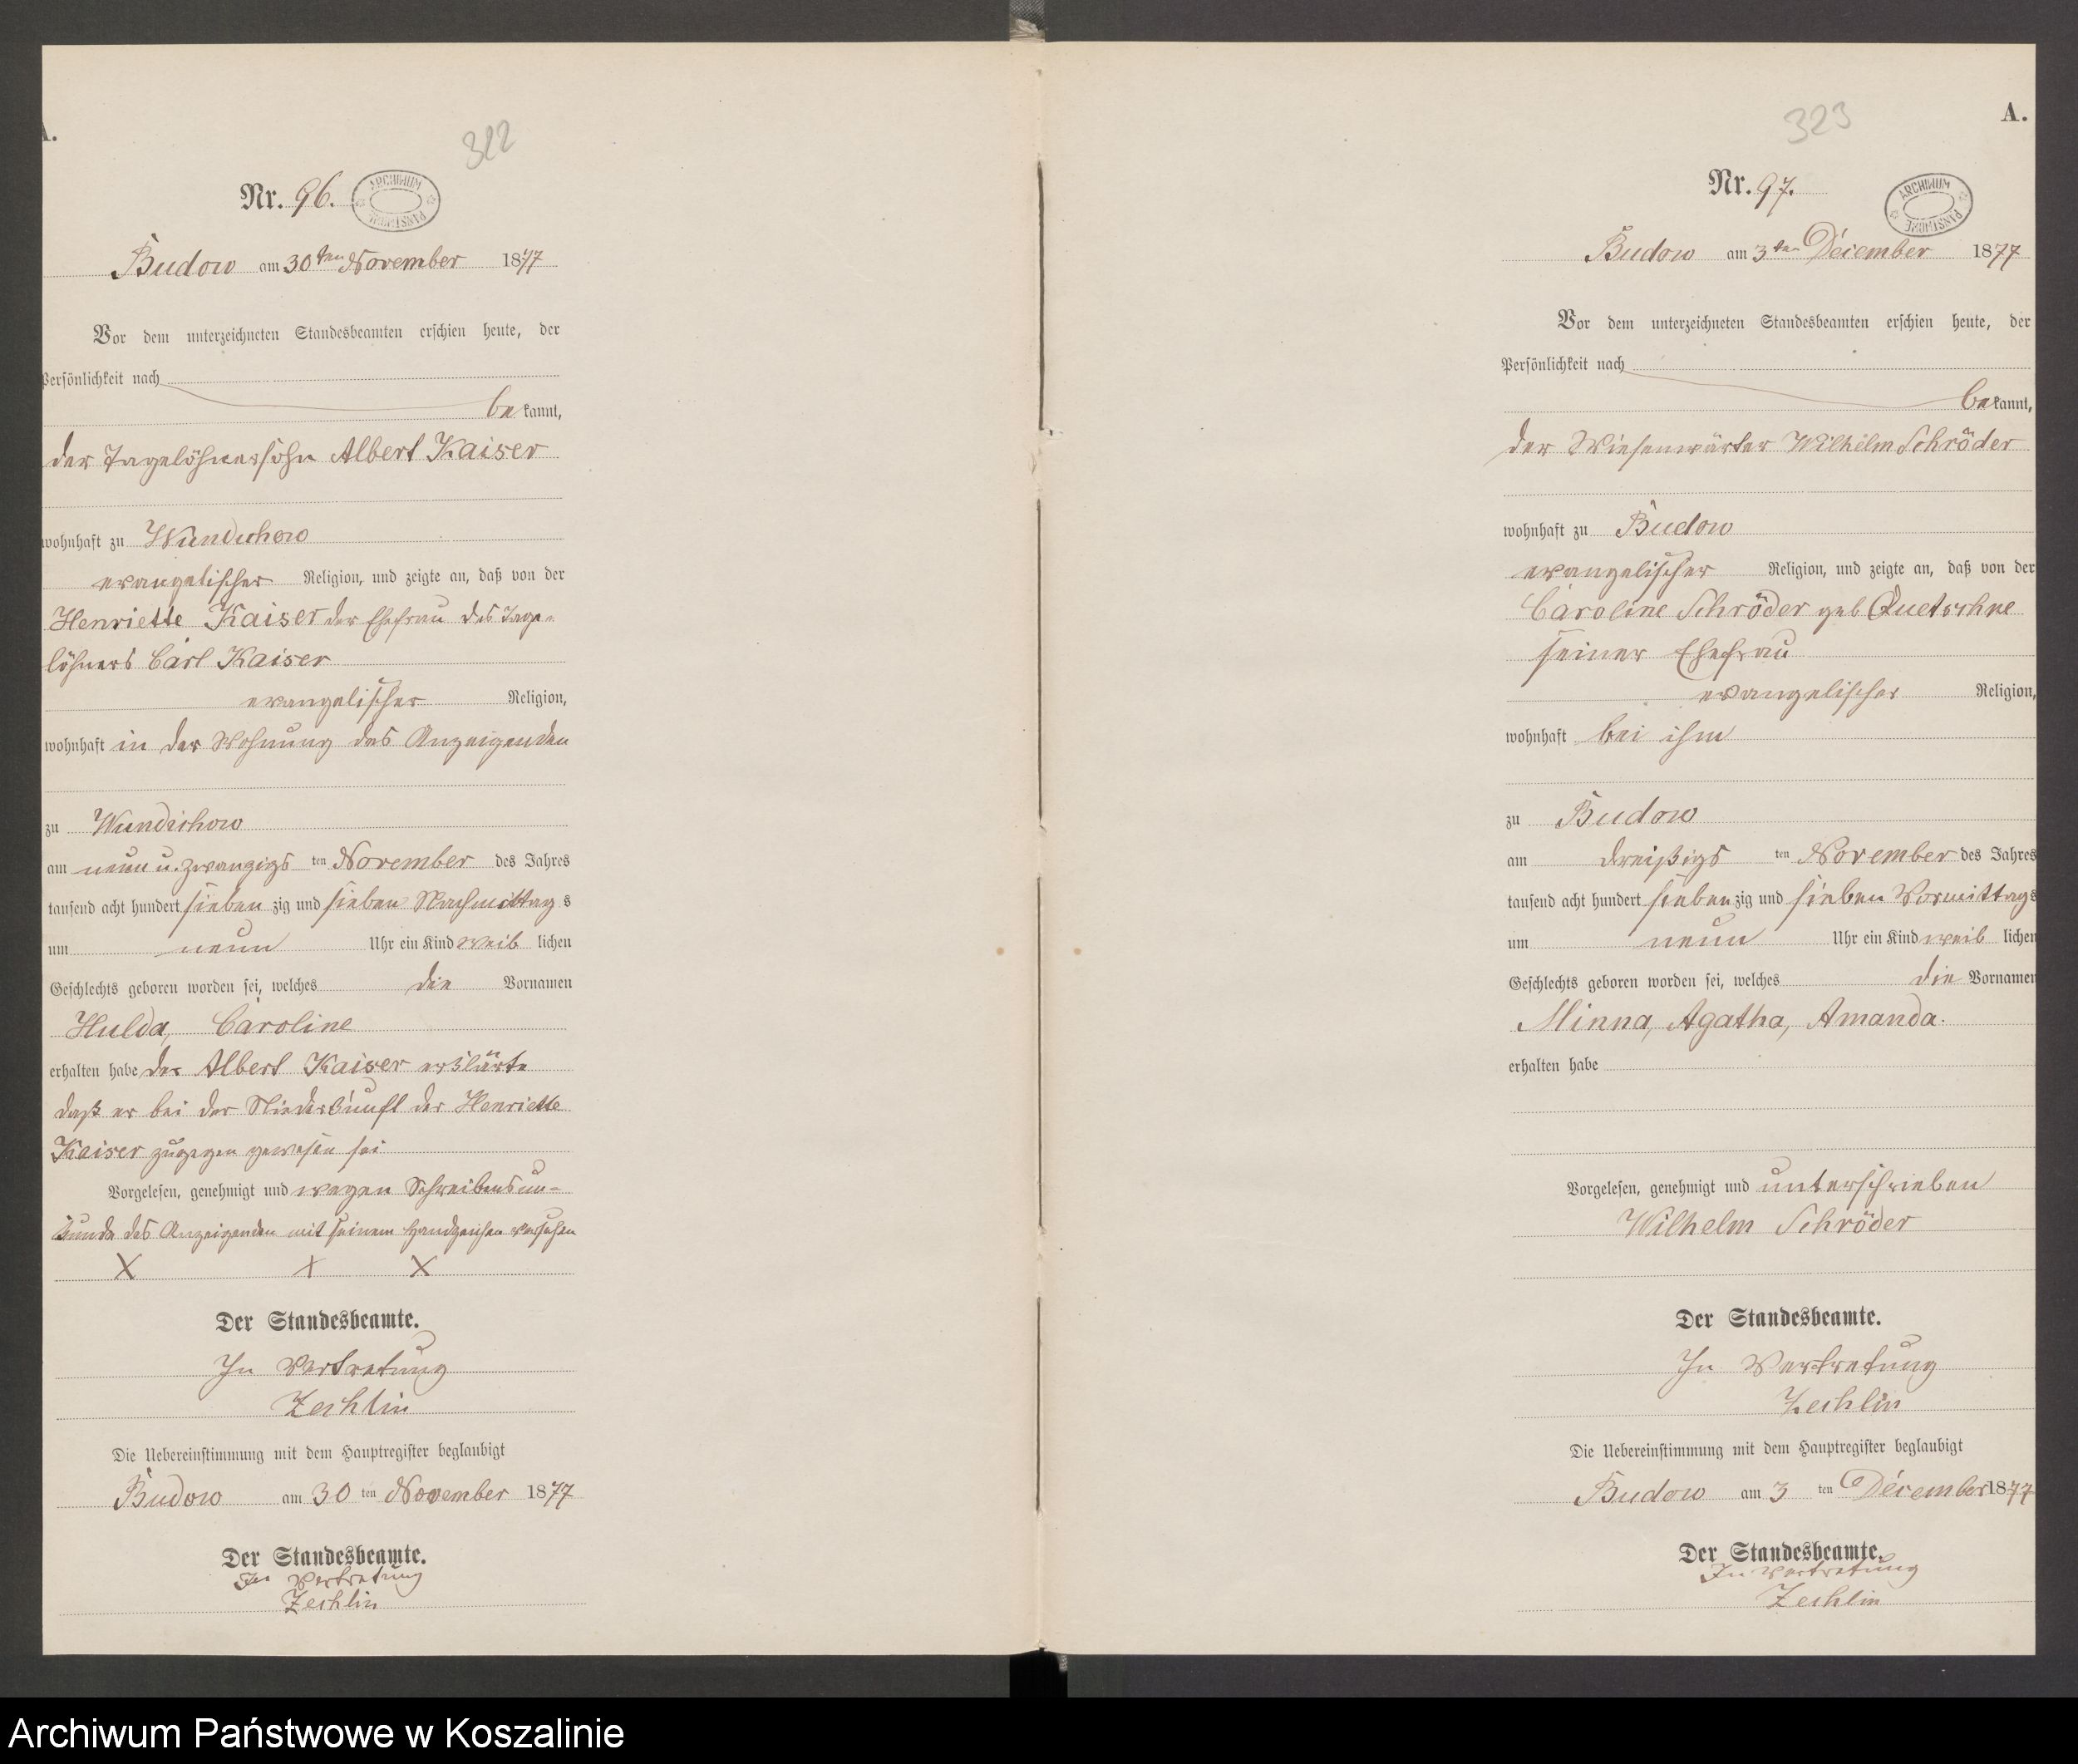 A.
322
Nr. 96.
ARCHIWUM PAŃSTWOWE
Budow am 30ten November 1877
Vor dem unterzeichneten Standesbeamten erschien heute, der
Persönlichkeit nach
bekannt,
der Tagelöhnersohn Albert Kaiser
wohnhaft zu Wundichow
evangelischer Religion, und zeigte an, daß von der
Henriette Kaiser der Ehefrau des Tage-
löhners Carl Kaiser
evangelischer Religion,
wohnhaft in der Wohnung des Anzeigenden
zu Wundichow
am neun u. zwanzigs ten November des Jahres
tausend acht hundert sieben zig und sieben Nachmittag s
um neun Uhr ein Kind weib lichen
Geschlechts geboren worden sei, welches die Vornamen
Hulda, Caroline
erhalten habe der Albert Kaiser erklärte
daß er bei der Niederkunft der Henriette
Kaiser zugegen gewesen sei
Vorgelesen, genehmigt und wegen Schreibensun-
kunde des Anzeigenden mit seinem Handzeichen versehen
X X X
Der Standesbeamte.
In Vertretung
Zechlin
Die Uebereinstimmung mit dem Hauptregister beglaubigt
Budow am 30 ten November 1877
Der Standesbeamte.
In Vertretung
Zechlin
323
A.
Nr. 97.
ARCHIWUM PAŃSTWOWE
Budow am 3ten December 1877
Vor dem unterzeichneten Standesbeamten erschien heute, der
Persönlichkeit nach
bekannt,
der Wiesenwärter Wilhelm Schröder
wohnhaft zu Budow
evangelischer Religion, und zeigte an, daß von der
Caroline Schröder geb Quetschke
seiner Ehefrau
evangelischer Religion,
wohnhaft bei ihm
zu Budow
am dreißigs ten November des Jahres
tausend acht hundert sieben zig und sieben Vormittags
um neun Uhr ein Kind weib lichen
Geschlechts geboren worden sei, welches die Vornamen
Minna, Agatha, Amanda.
erhalten habe
Vorgelesen, genehmigt und unterschrieben
Wilhelm Schröder
Der Standesbeamte.
In Vertretung
Zechlin
Die Uebereinstimmung mit dem Hauptregister beglaubigt
Budow am 3 ten December 1877
Der Standesbeamte.
In Vertretung
Zechlin
Archiwum Państwowe w Koszalinie